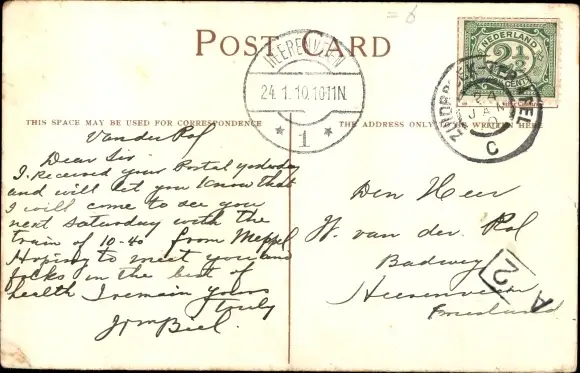 = 6
POST CARD
NEDERLAND
2½
CENT
HEERENVEEN
24.1.10.10-11N.
* 1 *
24
JAN
10
C
THIS SPACE MAY BE USED FOR CORRESPONDENCE
THE ADDRESS ONLY TO BE WRITTEN HERE
Van der Rol
Dear Sir
I received your Postal yesterday
and will let you Know that
I will come to see you
next Saturday with the
train of 10-40 from Meppel
Hoping to meet you and
folks in the best of
health I remain yours
truly
Biel.
Den Heer
W. van der. Rol
Badweg
Heerenveen
Friesland
A
2